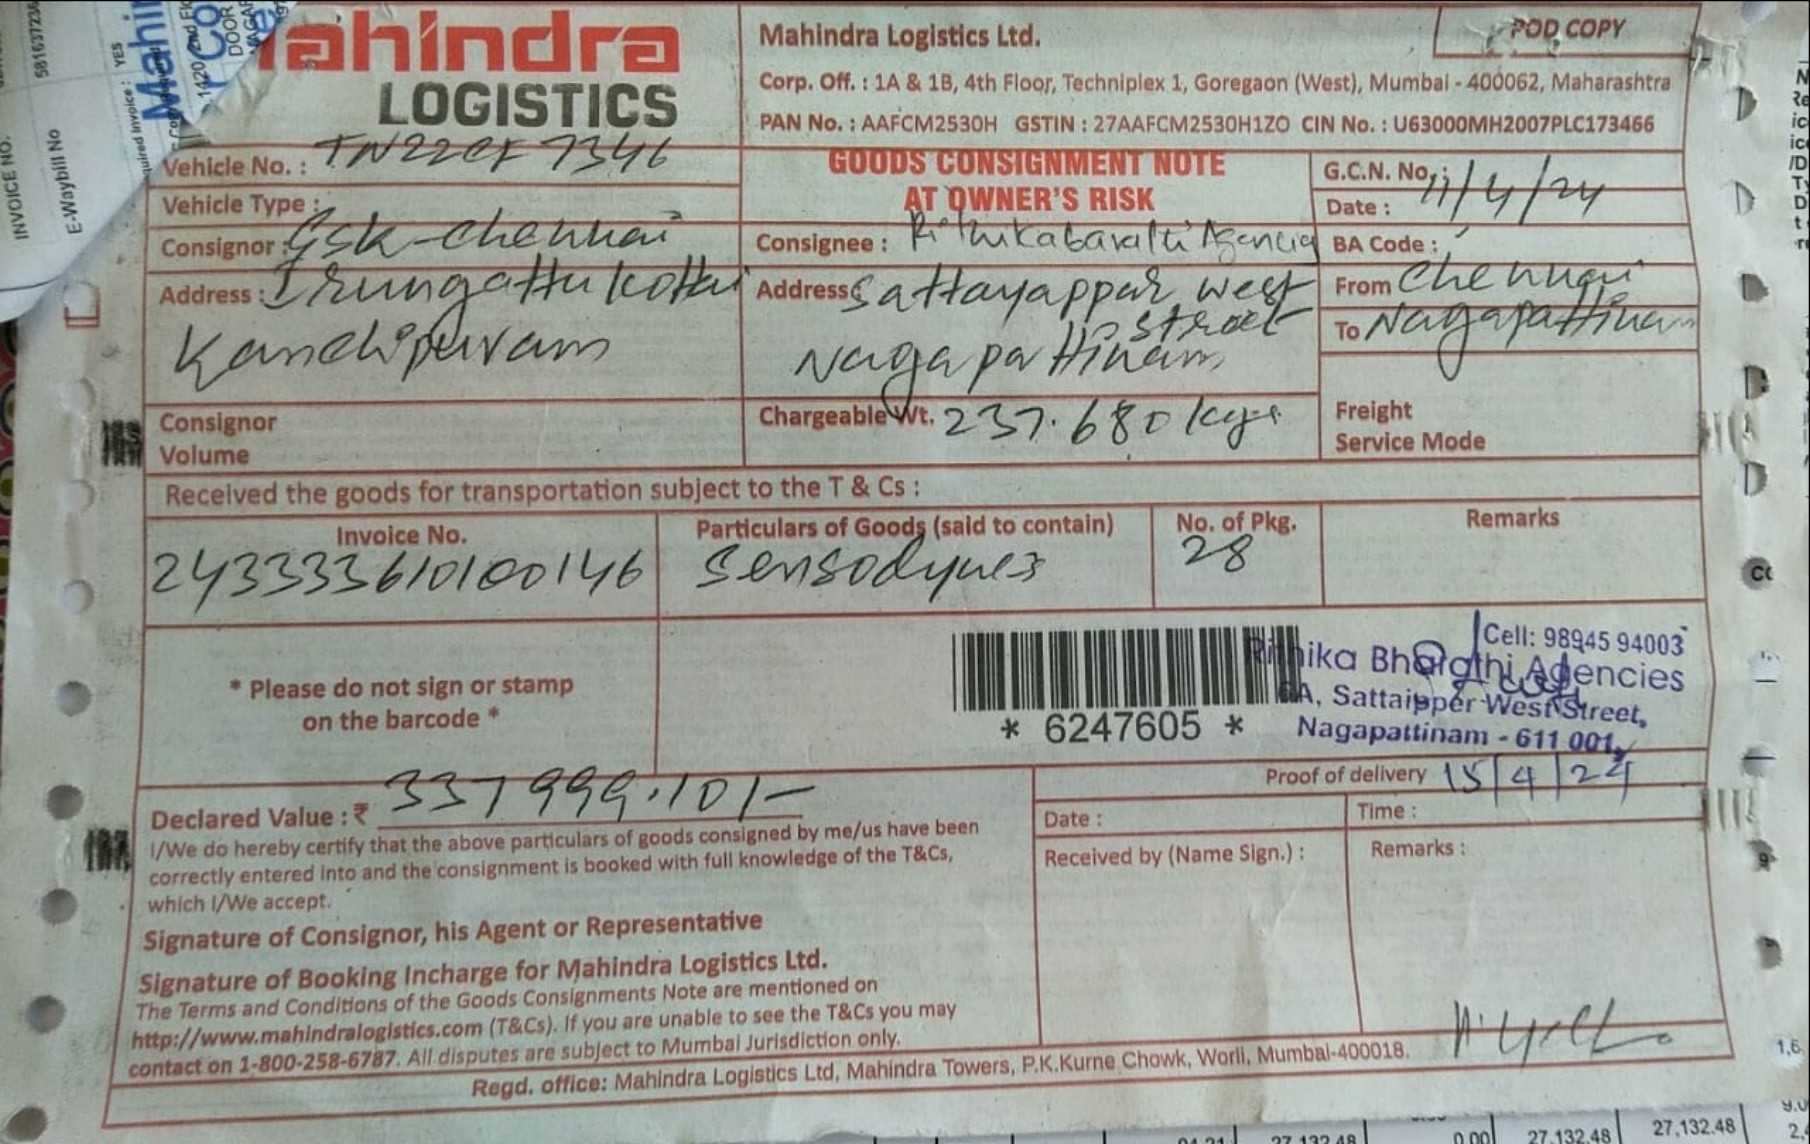 Mahindra Logistics Ltd.
POD COPY
ahindra
LOGISTICS
Corp. Off. : 1A & 1B, 4th Floor, Techniplex 1, Goregaon (West), Mumbai - 400062, Maharashtra
PAN No. : AAFCM2530H GSTIN : 27AAFCM2530H1ZO CIN No. : U63000MH2007PLC173466
INVOICE NO.
E-Waybill No
YES
Vehicle No. : TN22CF7346
Vehicle Type :
GOODS CONSIGNMENT NOTE
AT OWNER'S RISK
G.C.N. No. :
Date : 11/4/24
Consignor : Gsk-chennai
Address : Irungattukottai
Kanchipuram
Consignee :
Address Sattayappar west
street
Nagapattinam
BA Code :
From Chennai
To Nagapattinam
Consignor
Volume
Chargeable Wt. 237.680 kgs
Freight
Service Mode
Received the goods for transportation subject to the T & Cs :
Invoice No.
Particulars of Goods (said to contain)
No. of Pkg.
Remarks
243333610100146
28
* Please do not sign or stamp
on the barcode *
* 6247605 *
Cell: 98945 94003
Rithika Bharathi Agencies
6A, Sattaipper West Street,
Nagapattinam - 611 001.
Proof of delivery 15/4/24
Declared Value : ₹ 337999.10/-
I/We do hereby certify that the above particulars of goods consigned by me/us have been
correctly entered into and the consignment is booked with full knowledge of the T&Cs,
which I/We accept.
Date :
Time :
Received by (Name Sign.) :
Remarks :
Signature of Consignor, his Agent or Representative
Signature of Booking Incharge for Mahindra Logistics Ltd.
The Terms and Conditions of the Goods Consignments Note are mentioned on
http://www.mahindralogistics.com (T&Cs). If you are unable to see the T&Cs you may
contact on 1-800-258-6787. All disputes are subject to Mumbai Jurisdiction only.
Regd. office: Mahindra Logistics Ltd, Mahindra Towers, P.K.Kurne Chowk, Worli, Mumbai-400018.
27,132.48
0.00
27,132.48
27,132.48